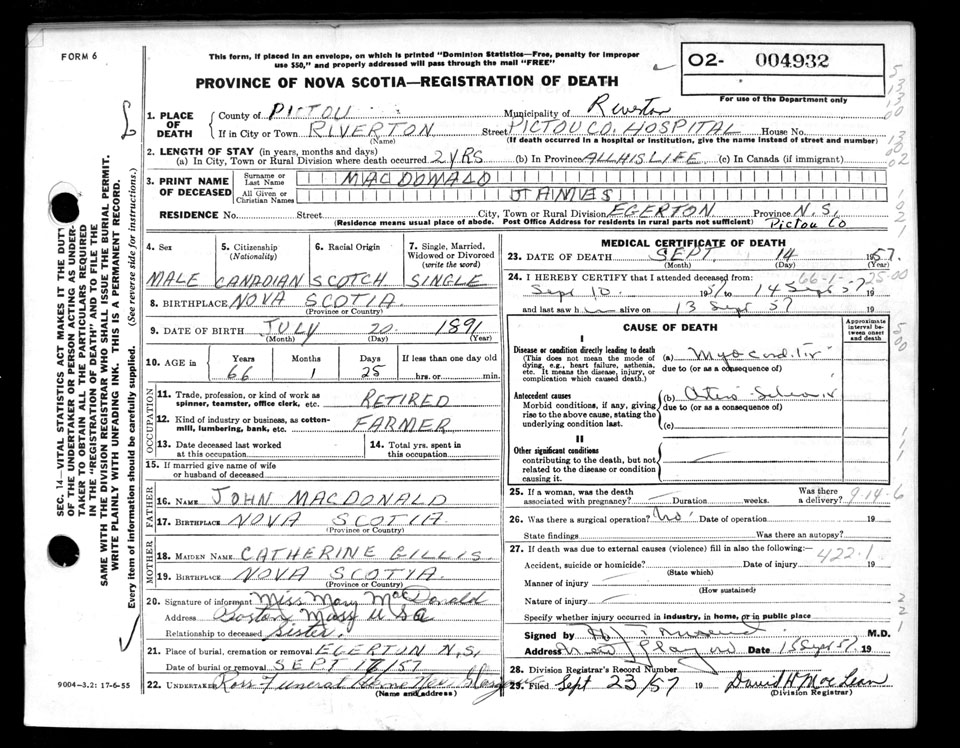 FORM 6
This form, if placed in an envelope, on which is printed "Dominion Statistics—Free, penalty for improper
use $50," and properly addressed will pass through the mail "FREE"
O2- 004932
For use of the Department only
PROVINCE OF NOVA SCOTIA—REGISTRATION OF DEATH
1. PLACE OF DEATH
County of PICTOU Municipality of Riverton
If in City or Town RIVERTON (Name) Street PICTOU CO. HOSPITAL House No.
(If death occurred in a hospital or institution, give the name instead of street and number)
2. LENGTH OF STAY (in years, months and days)
(a) In City, Town or Rural Division where death occurred 2 YRS (b) In Province ALL HIS LIFE (c) In Canada (if immigrant)
3. PRINT NAME OF DECEASED
Surname or Last Name MACDONALD
All Given or Christian Names JAMES
RESIDENCE No. Street City, Town or Rural Division EGERTON Province N.S.
(Residence means usual place of abode. Post Office Address for residents in rural parts not sufficient) Pictou Co
4. Sex
MALE
5. Citizenship (Nationality)
CANADIAN
6. Racial Origin
SCOTCH
7. Single, Married, Widowed or Divorced (write the word)
SINGLE
8. BIRTHPLACE NOVA SCOTIA
(Province or Country)
9. DATE OF BIRTH JULY 20 1891
(Month) (Day) (Year)
10. AGE in
Years Months Days If less than one day old
66 1 25 hrs. or min.
OCCUPATION
11. Trade, profession, or kind of work as
spinner, teamster, office clerk, etc. RETIRED
12. Kind of industry or business, as cotton-
mill, lumbering, bank, etc. FARMER
13. Date deceased last worked
at this occupation
14. Total yrs. spent in
this occupation
15. If married give name of wife
or husband of deceased
FATHER
16. NAME JOHN MACDONALD
17. BIRTHPLACE NOVA SCOTIA
(Province or Country)
MOTHER
18. MAIDEN NAME CATHERINE GILLIS
19. BIRTHPLACE NOVA SCOTIA.
(Province or Country)
20. Signature of informant Miss Mary MacDonald
Address Boston Mass USA
Relationship to deceased Sister.
21. Place of burial, cremation or removal EGERTON N.S.
Date of burial or removal SEPT 17/57
22. UNDERTAKER Ross Funeral Home New Glasgow
(Name and address)
MEDICAL CERTIFICATE OF DEATH
23. DATE OF DEATH SEPT. 14 1957.
(Month) (Day) (Year)
24. I HEREBY CERTIFY that I attended deceased from:
Sept 10. 1957 to 14 Sept 57 19
and last saw him alive on 13 Sept 57 19
CAUSE OF DEATH
Approximate interval between onset and death
I
Disease or condition directly leading to death
(This does not mean the mode of
dying, e.g., heart failure, asthenia,
etc. It means the disease, injury, or
complication which caused death.)
(a) Myocarditis
due to (or as a consequence of)
Antecedent causes
Morbid conditions, if any, giving
rise to the above cause, stating the
underlying condition last.
(b) Arterio-Sclerosis
due to (or as a consequence of)
(c)
II
Other significant conditions
contributing to the death, but not
related to the disease or condition
causing it.
25. If a woman, was the death
associated with pregnancy? Duration weeks. Was there
a delivery? 9-14-6
26. Was there a surgical operation? No. Date of operation 19
State findings Was there an autopsy?
27. If death was due to external causes (violence) fill in also the following:—
422.1
Accident, suicide or homicide? Date of injury 19
(State which)
Manner of injury
(How sustained)
Nature of injury
Specify whether injury occurred in industry, in home, or in public place
Signed by M.D.
Address New Glasgow Date 15 Sept 57 19
28. Division Registrar's Record Number
29. Filed Sept 23/57 19 David H MacLean
(Division Registrar)
9004-3.2: 17-6-55
SEC. 14—VITAL STATISTICS ACT MAKES IT THE DUTY
OF THE UNDERTAKER OR PERSON ACTING AS UNDER-
TAKER TO OBTAIN ALL THE PARTICULARS REQUIRED
IN THE "REGISTRATION OF DEATH" AND TO FILE THE
SAME WITH THE DIVISION REGISTRAR WHO SHALL ISSUE THE BURIAL PERMIT.
WRITE PLAINLY WITH UNFADING INK. THIS IS A PERMANENT RECORD.
Every item of information should be carefully supplied. (See reverse side for instructions.)